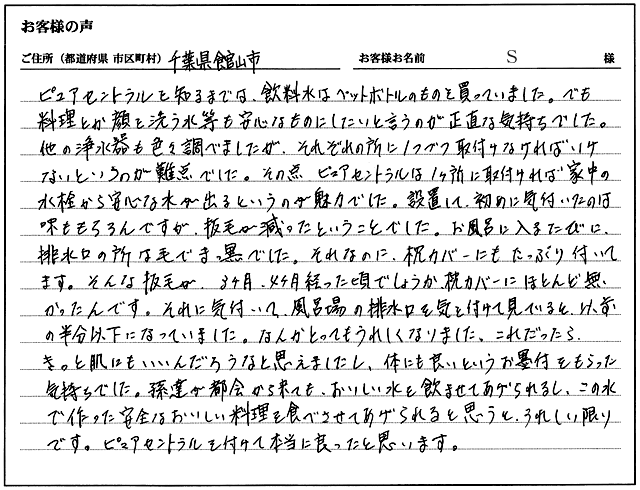 お客様の声
ご住所（都道府県 市区町村） 千葉県館山市 お客様お名前 S 様
ピュアセントラルを知るまでは、飲料水はペットボトルのものを買っていました。でも
料理とか顔を洗う水等も安心なものにしたいと言うのが正直な気持ちでした。
他の浄水器も色々調べましたが、それぞれの所に1つづつ取付けなければいけ
ないというのが難点でした。その点、ピュアセントラルは1ヶ所に取付ければ家中の
水栓から安心な水が出るというのが魅力でした。設置して、初めに気付いたのは
味ももちろんですが、抜毛が減ったということでした。お風呂に入るたびに、
排水口の所は毛でまっ黒でした。それなのに、枕カバーにもたっぷり付いて
ます。そんな抜毛が、3ヶ月、4ヶ月経った頃でしょうか、枕カバーにほとんど無
かったんです。それに気付いて、風呂場の排水口を気を付けて見ていると、以前
の半分以下になっていました。なんかとってもうれしくなりました、これだったら、
きっと肌にもいいんだろうなと思えましたし、体にも良いというお墨付をもらった
気持ちでした。孫達が都会から来ても、おいしい水を飲ませてあげられるし、この水
で作った安全なおいしい料理を食べさせてあげられると思うと、うれしい限り
です。ピュアセントラルを付けて本当に良ったと思います。